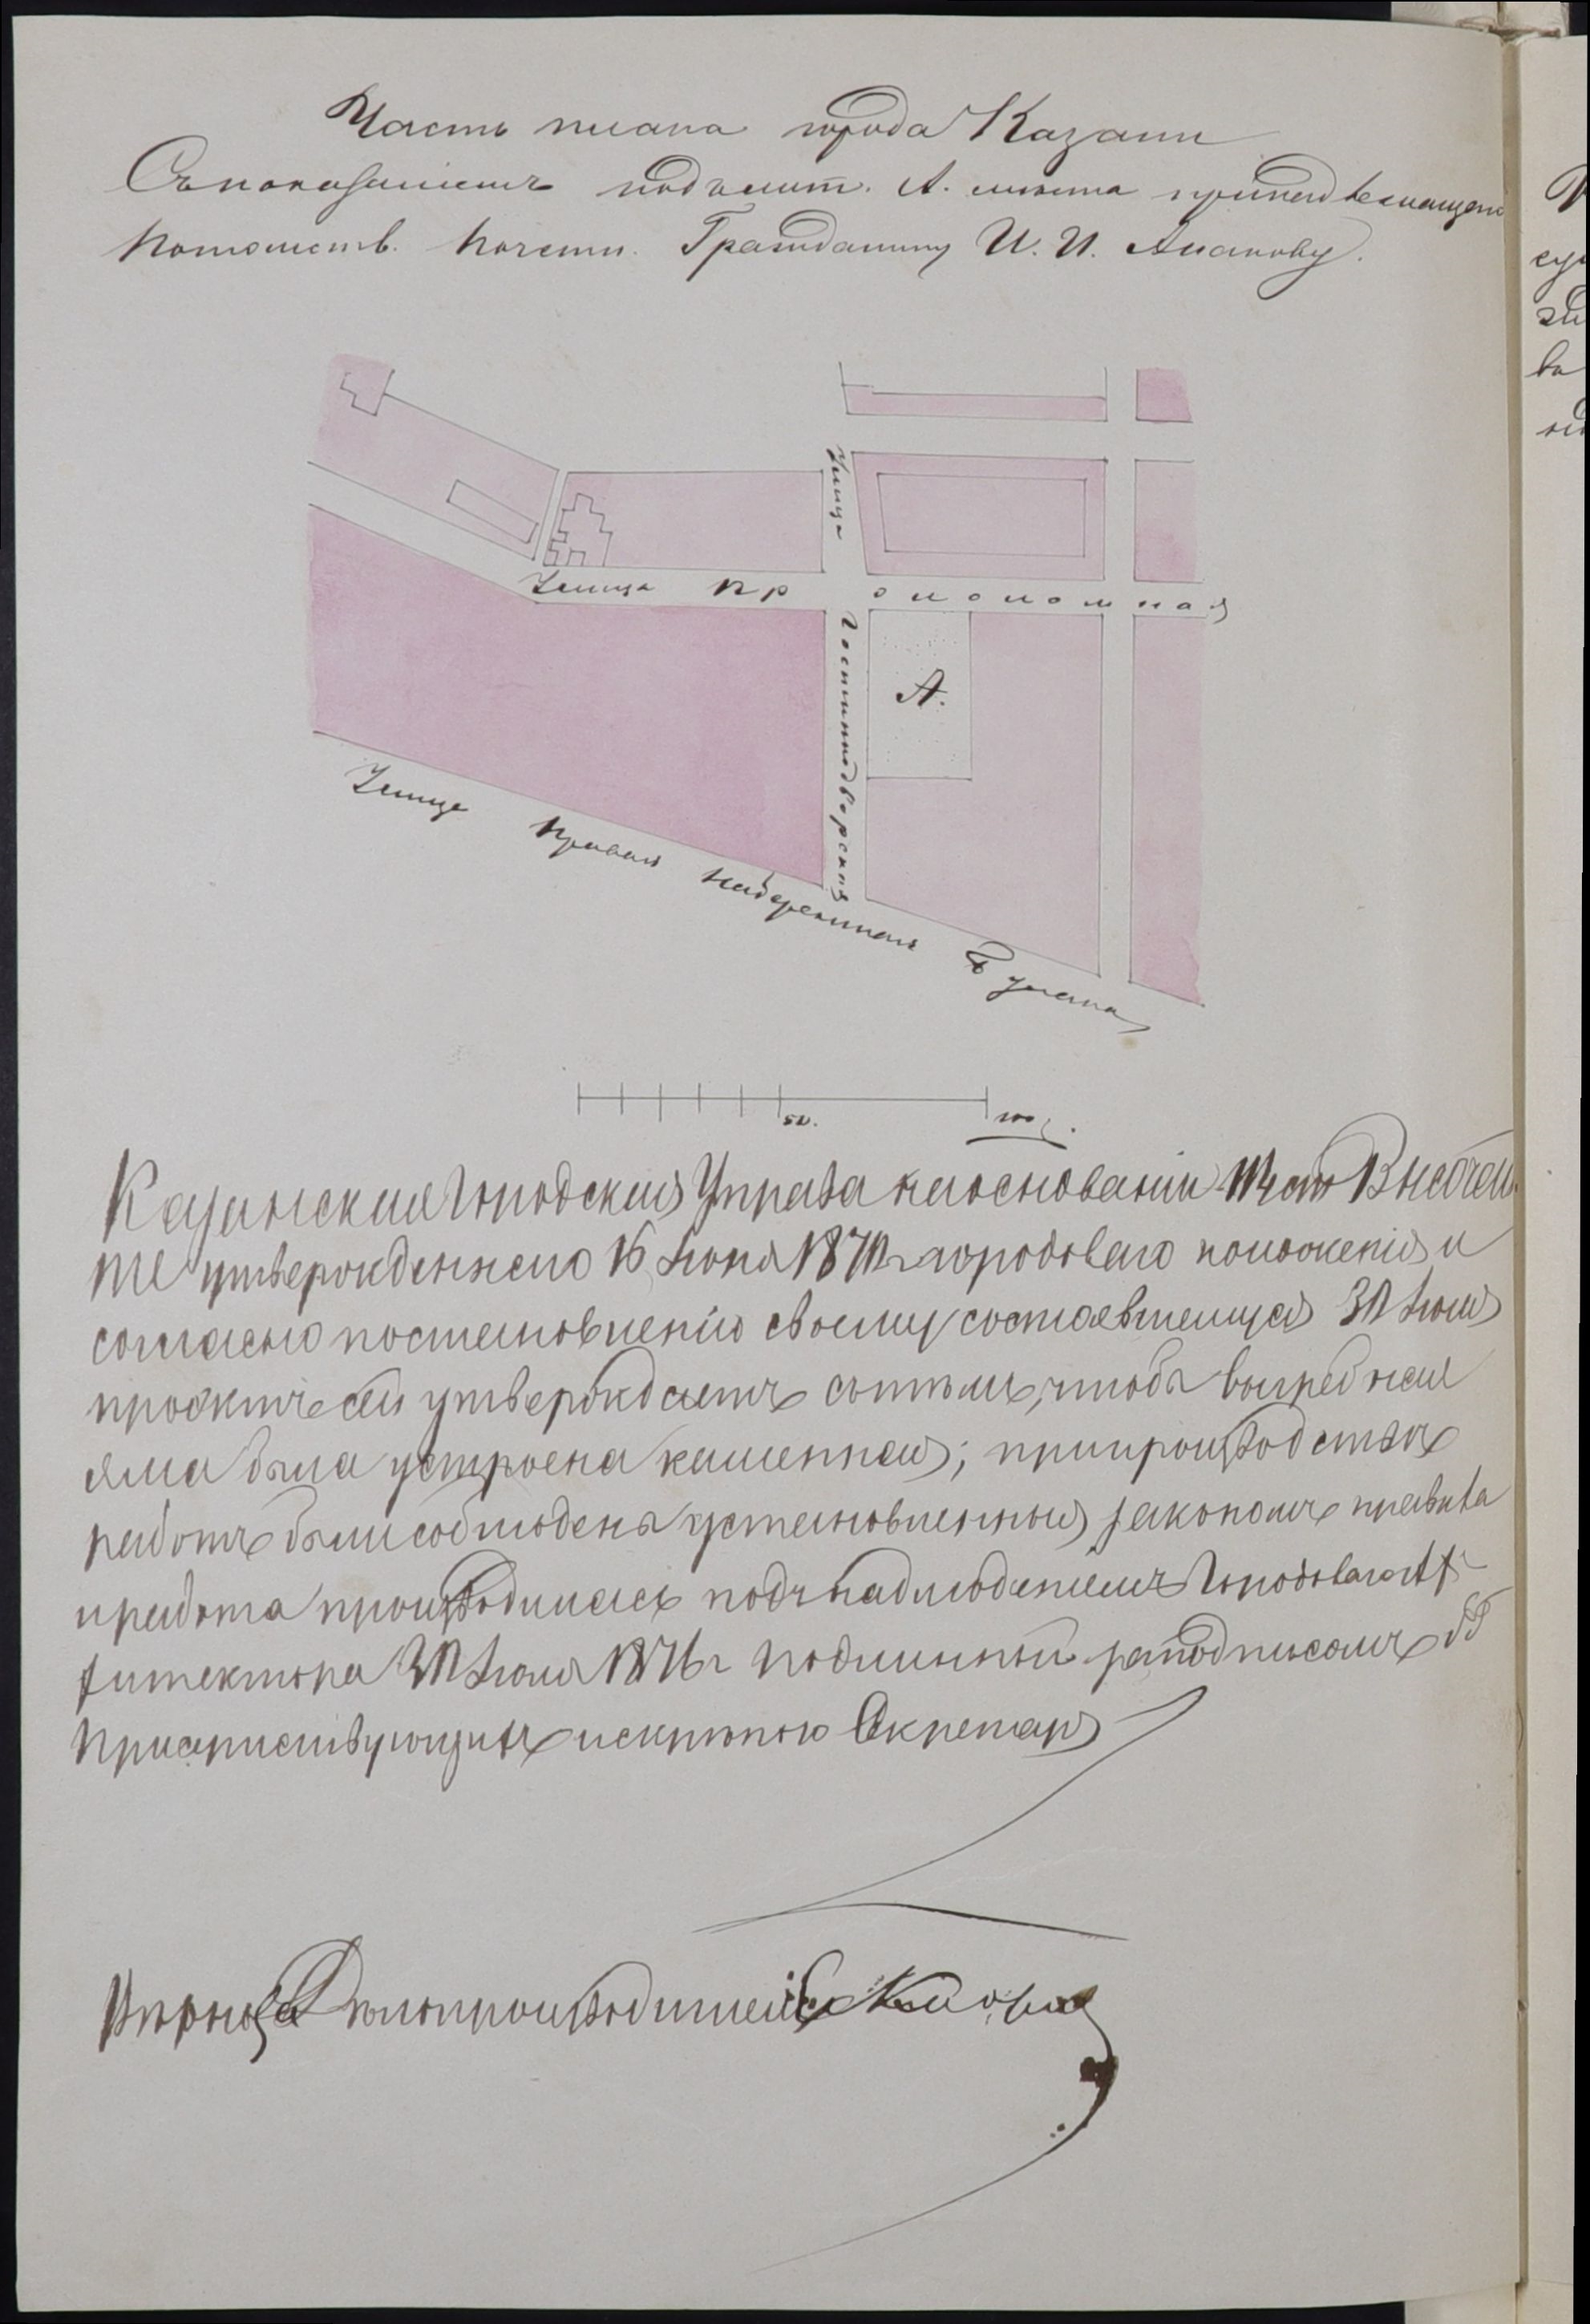 Часть плана города Казани
Съ показаніемъ подъ лит. А. мѣста принадлежащаго
Потомств. Почетн. Гражданину И. И. Апакову.
Улица
Улица Проломная
Гостиннодворская
А.
Улица Правая набережная Булака
50. 100 с.
Казанская Городская Управа на основаніи 114 ст. Высочай
ше утвержденнаго 16 Іюня 1870 г. городоваго положенія и
согласно постановленію своему состоявшемуся 30 Іюля
проэктъ сей утверждаетъ съ тѣмъ, чтобы выгребная
яма была устроена каменная; при производствѣ
работъ были соблюдены установленныя закономъ правила
и работа производилась подъ наблюденіемъ Городоваго Ар-
хитектора 30 Іюля 1876 г. Подлинный за подписомъ гг.
Присутствующихъ и скрѣпою Секретаря
Вѣрно: за Дѣлопроизводителя